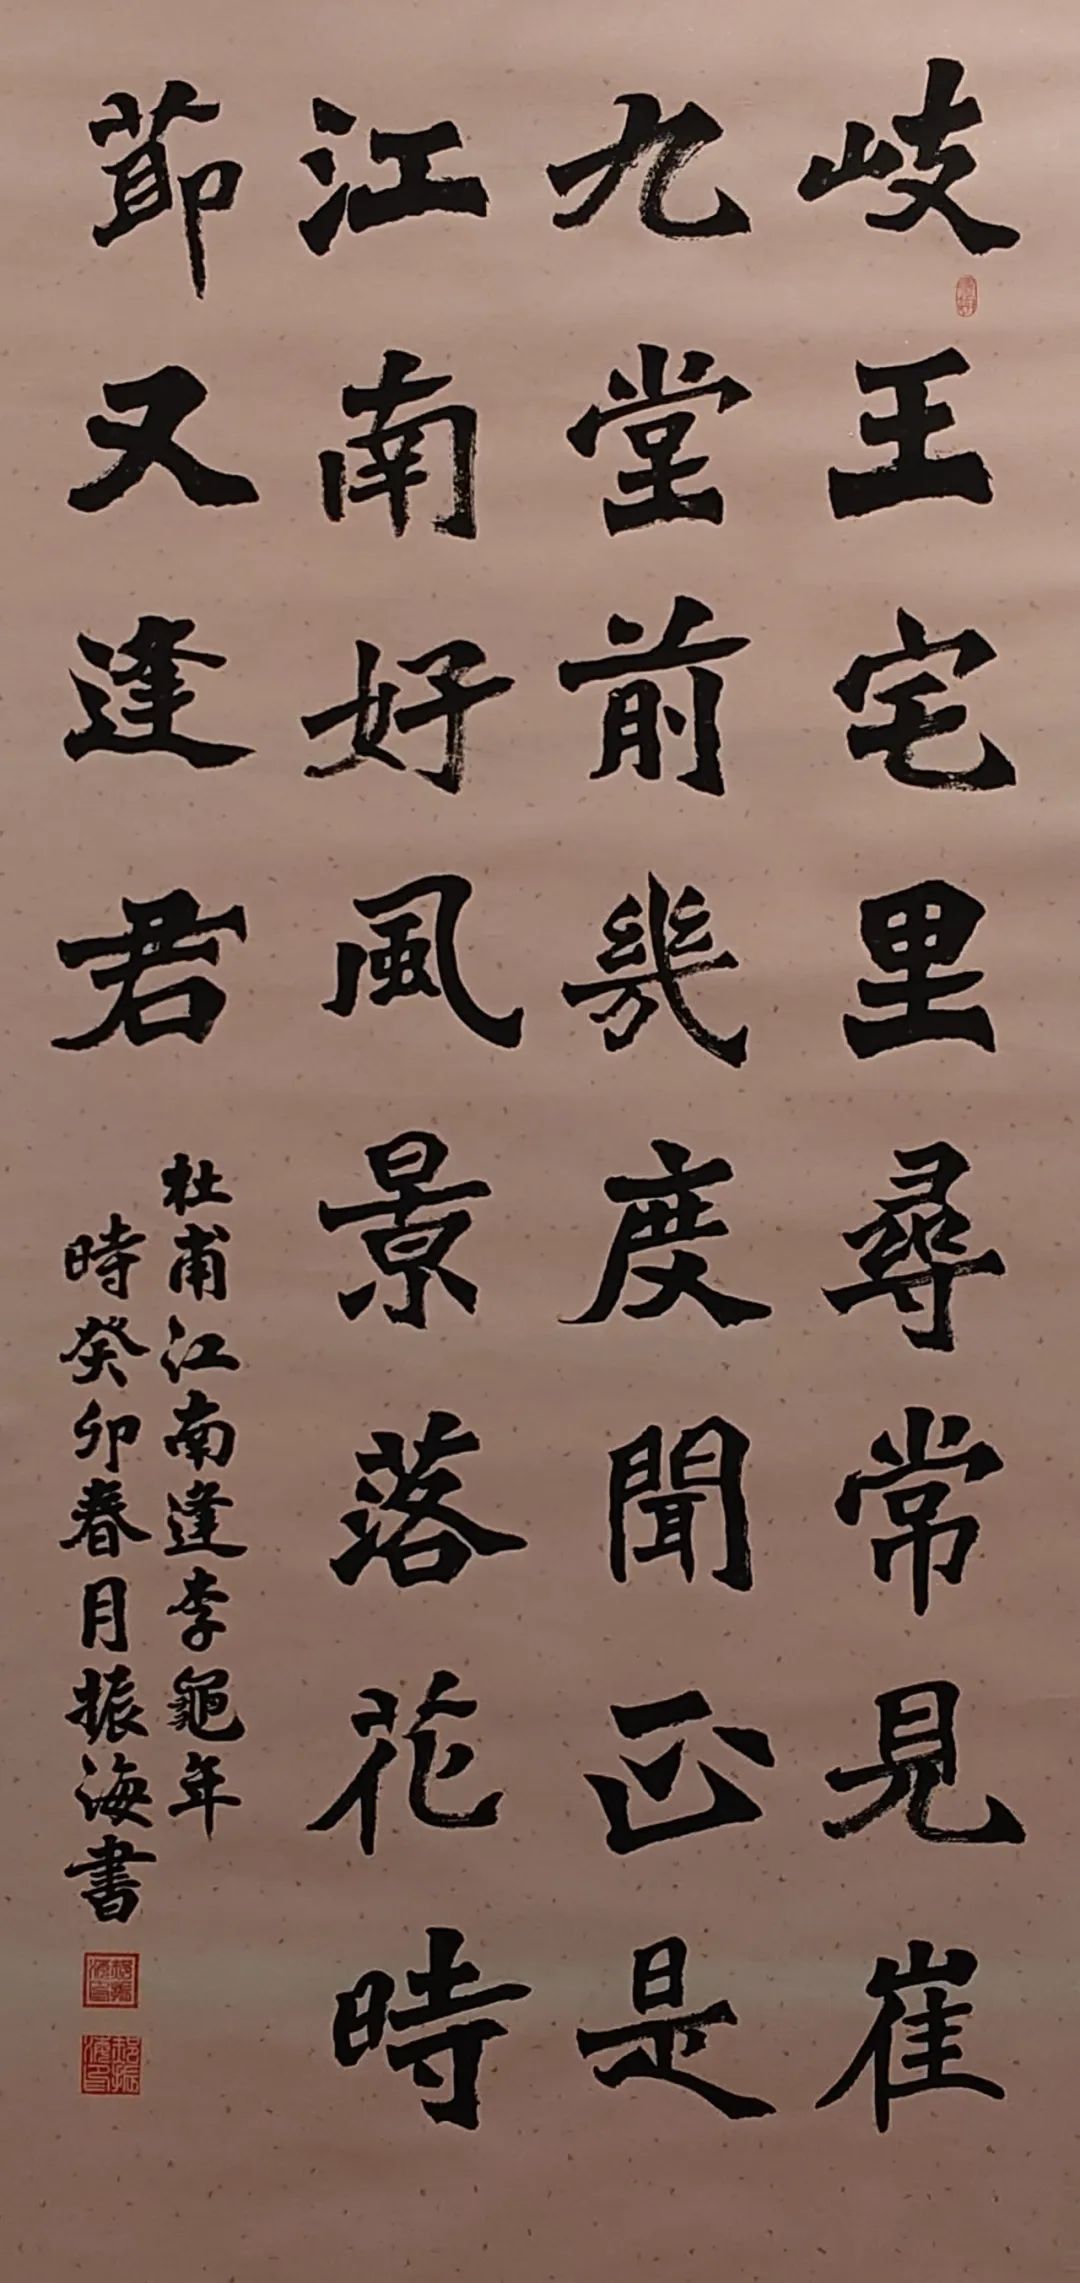 岐王宅里尋常見崔
九堂前幾度聞正是
江南好風景落花時
節又逢君
杜甫江南逢李龜年
時癸卯春月振海書